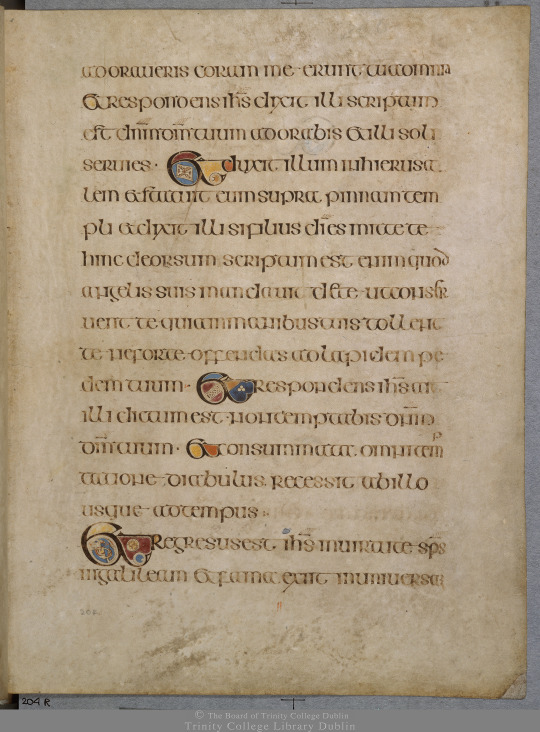 adoraueris coram me erunt tua omnia
Et respondens ihs dixit illi scriptum
est dnm dm tuum adorabis et illi soli
seruies · Et duxit illum in hierusa
lem et statuit eum supra pinnam tem
pli et dixit illi si filius di es mitte te
hinc deorsum scriptum est enim quod
angelis suis mandauit de te ut conser
uent te quia in manibus tuis tollent
te ne forte offendas ad lapidem pe
dem tuum · Et respondens ihs ait
illi dictum est non temptabis dnm
dm tuum · Et consummata omni temp
tatione diabulus recessit ab illo
usque ad tempus
Et regresus est ihs in uirtute sps
in galileam et fama exiit in uniuersa
202
204 R
© The Board of Trinity College Dublin
Trinity College Library Dublin